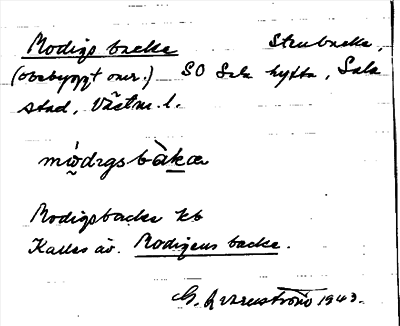 Modigs backe Stenbacke,
(obebyggt omr.) SO Sala hytta, Sala
stad, Västm. l.
mὼdigsbàkæ
Modigsbacke kb
Kallas äv. Modigens backe.
G. 1943.